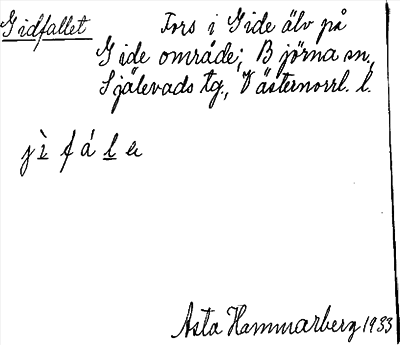 Gidfallet Fors i Gide älv på
Gide område; Björna sn,
Själevads tg., Västernorrl. l.
jì fá l e
Asta Hammarberg 1933